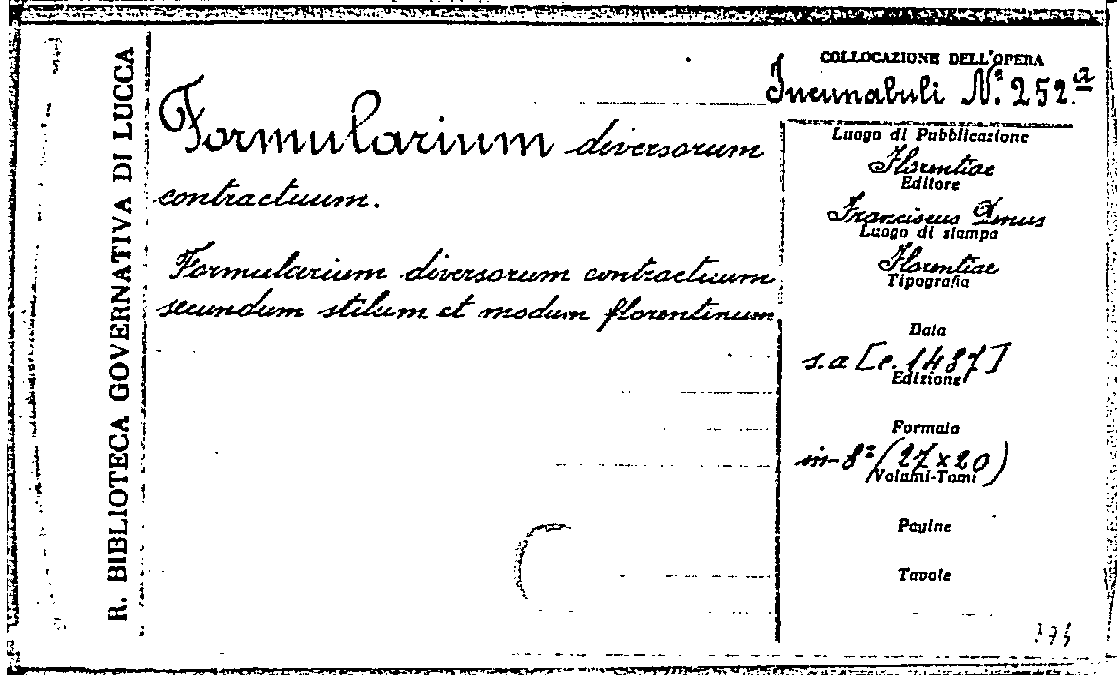 R. BIBLIOTECA GOVERNATIVA DI LUCCA
Formularium diversorum
contractuum.
Formularium diversorum contractuum
secundum stilum et modum florentinum
COLLOCAZIONE DELL'OPERA
Incunabuli N.° 252.a
Luogo di Pubblicazione
Florentiae
Editore
Franciscus
Luogo di stampa
Florentiae
Tipografia
Data
s.a [c. 1487]
Edizione
Formato
in-8° (27x20)
Volumi-Tomi
Pagine
Tavole